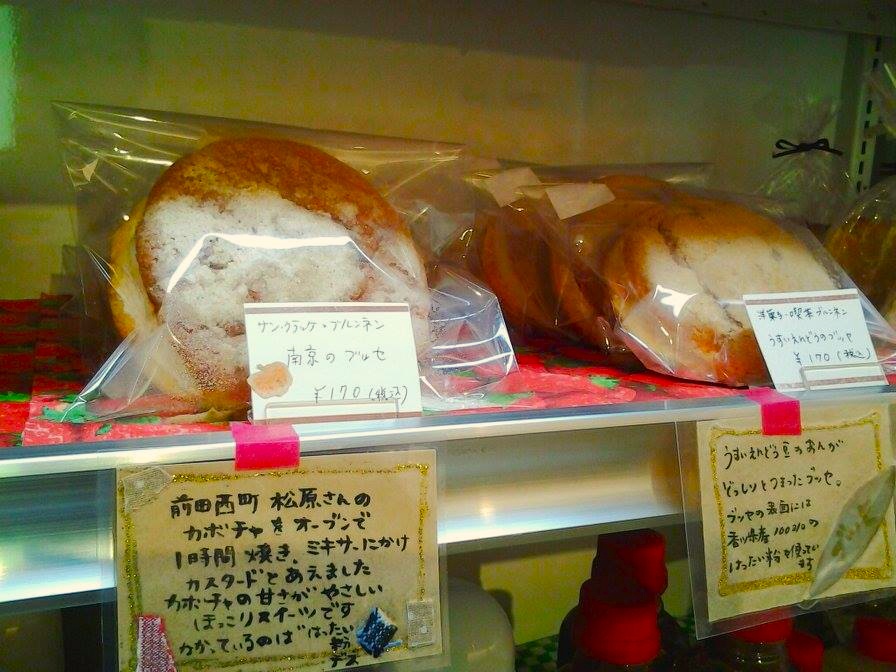 サン・クラッケ・ブルンネン
南京のブッセ
¥170(税込)
洋菓子・喫茶ブルンネン
うすいえんどうのブッセ
¥170(税込)
前田西町 松原さんの
カボチャをオーブンで
1時間焼き、ミキサーにかけ
カスタードとあえました
カボチャの甘さがやさしい
ほっこりスイーツです
かかっているのは"はったい粉デス
うすいえんどう豆のあんが
どっしりとつまったブッセ。
ブッセの表面には
香川県産100%の
はったい粉を使ってい
ます